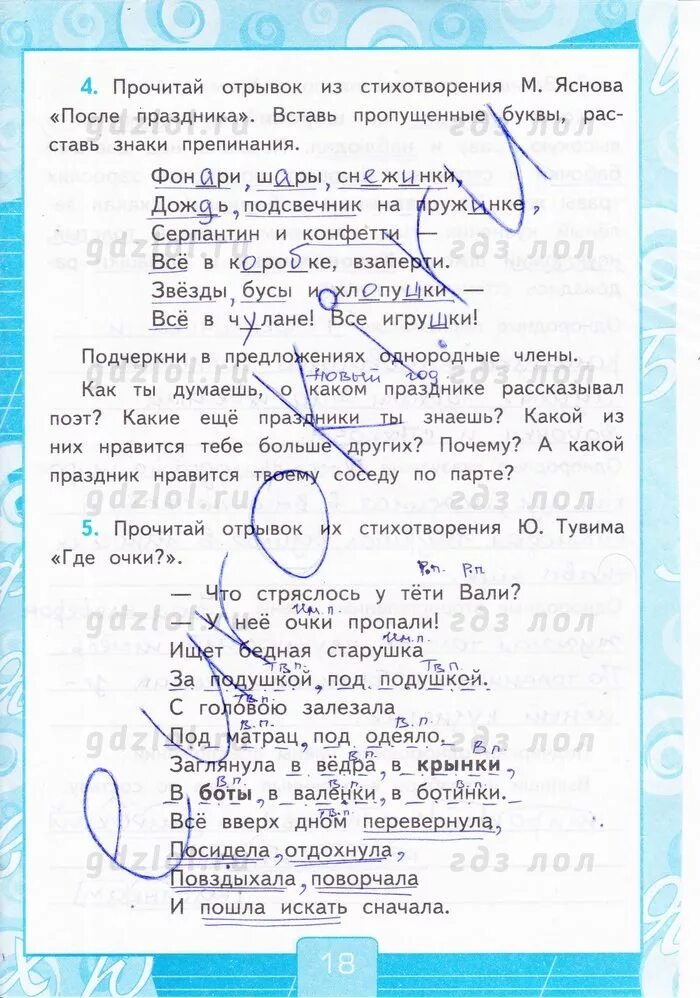 4. Прочитай отрывок из стихотворения М. Яснова
«После праздника». Вставь пропущенные буквы, рас-
ставь знаки препинания.
Фонари, шары, снежинки,
Дождь, подсвечник на пружинке,
Серпантин и конфетти —
Всё в коробке, взаперти.
Звёзды, бусы и хлопушки —
Всё в чулане! Все игрушки!
Подчеркни в предложениях однородные члены.
Новый год
Как ты думаешь, о каком празднике рассказывал
поэт? Какие ещё праздники ты знаешь? Какой из
них нравится тебе больше других? Почему? А какой
праздник нравится твоему соседу по парте?
5. Прочитай отрывок их стихотворения Ю. Тувима
«Где очки?».
Р.п. Р.п
— Что стряслось у тёти Вали?
Им.п.
— У неё очки пропали!
Им.п.
Ищет бедная старушка
Тв.п. Тв.п.
За подушкой, под подушкой.
С головою залезала
В.п. В.п.
Под матрац, под одеяло.
В.п. В.п
Заглянула в вёдра, в крынки,
В.п. В.п. В.п.
В боты, в валенки, в ботинки.
Всё вверх дном перевернула,
Посидела, отдохнула,
Повздыхала, поворчала
И пошла искать сначала.
18
gdzlol.ru гдз лол
gdzlol.ru гдз лол
gdzlol.ru гдз лол
gdzlol.ru гдз лол
gdzlol.ru гдз лол
gdzlol.ru гдз лол
gdzlol.ru гдз лол